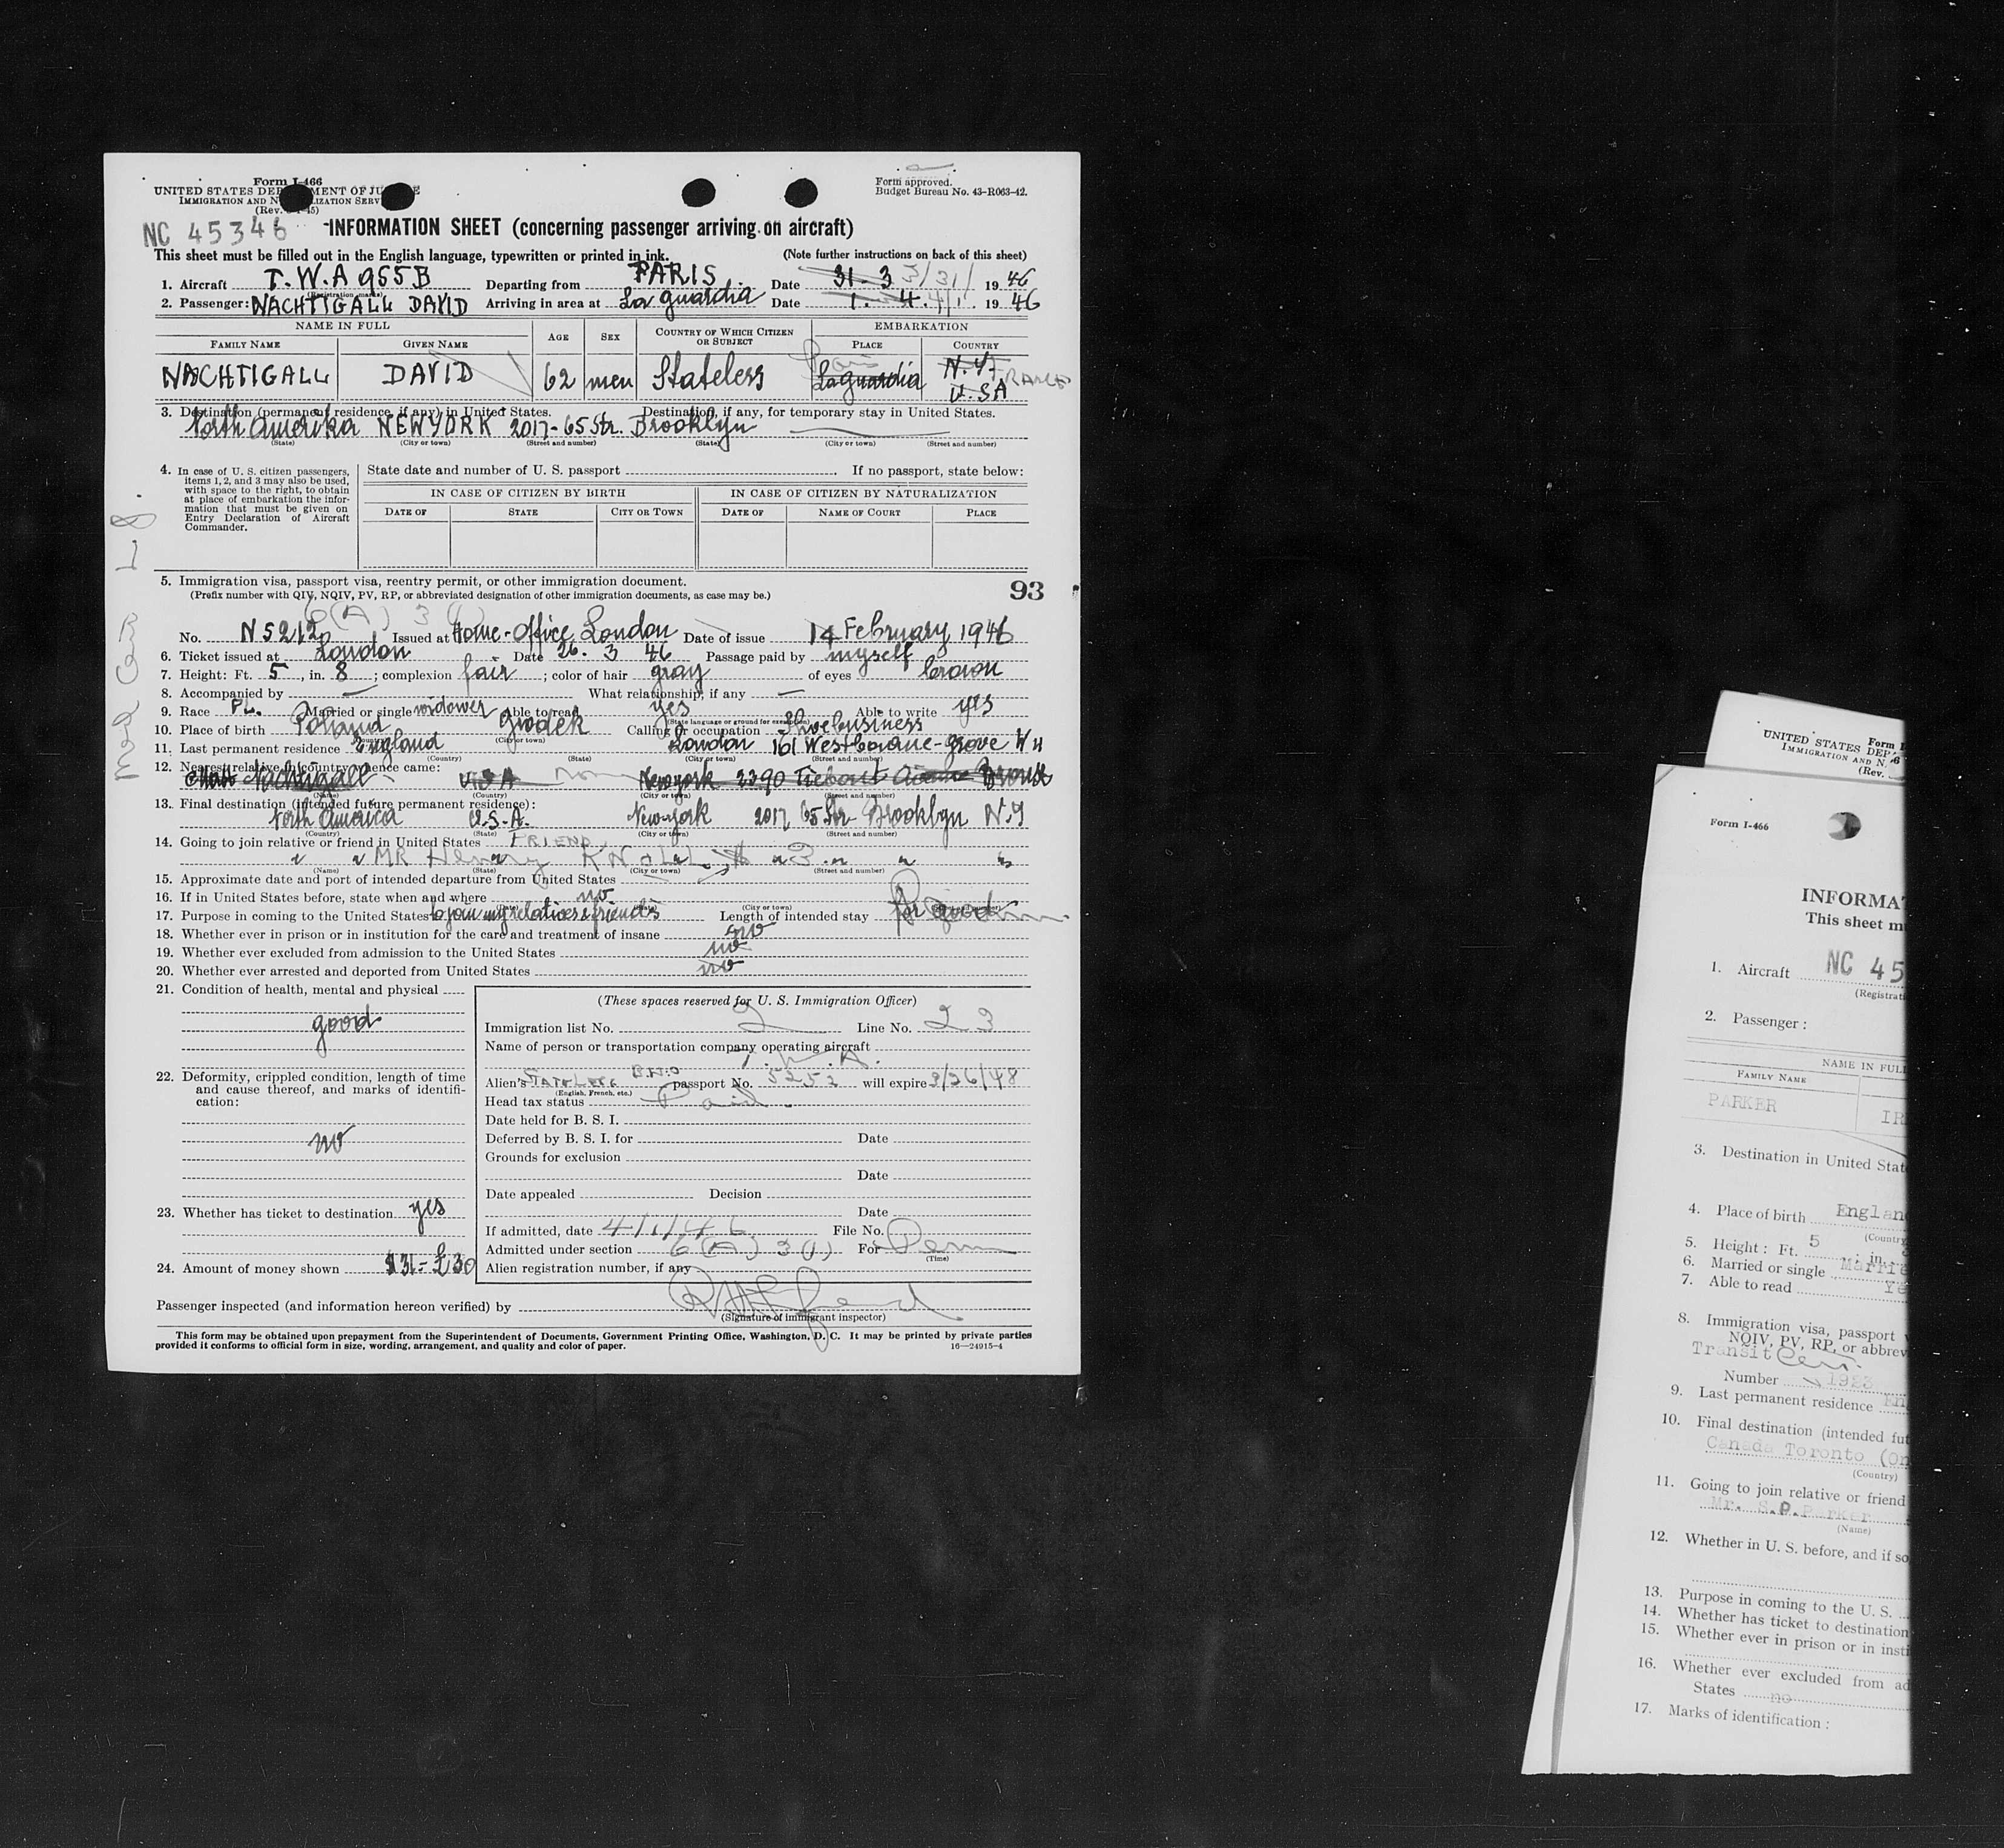 Form I-466
UNITED STATES DEP MENT OF JU E
IMMIGRATION AND N LIZATION SERV
(Rev. 45)
Form approved.
Budget Bureau No. 43-R063-42.
NC 45346
INFORMATION SHEET (concerning passenger arriving on aircraft)
This sheet must be filled out in the English language, typewritten or printed in ink. (Note further instructions on back of this sheet)
1. Aircraft T.W.A 955B Departing from PARIS Date 31-3 3/31/ 1946
(Registration marks)
2. Passenger: NACHTIGALL DAVID Arriving in area at La guardia Date 1. 4. 4/1 1946
NAME IN FULL AGE SEX COUNTRY OF WHICH CITIZEN OR SUBJECT EMBARKATION
FAMILY NAME GIVEN NAME PLACE COUNTRY
NACHTIGALL DAVID 62 men Stateless Paris Laguardia N.Y. U.SA FRANCE
3. Destination (permanent residence, if any) in United States. Destination, if any, for temporary stay in United States.
North Amerika NEWYORK 2017-65 Str. Brooklyn
(State) (City or town) (Street and number) (State) (City or town) (Street and number)
4. In case of U. S. citizen passengers, items 1, 2, and 3 may also be used, with space to the right, to obtain at place of embarkation the information that must be given on Entry Declaration of Aircraft Commander.
State date and number of U. S. passport If no passport, state below:
IN CASE OF CITIZEN BY BIRTH IN CASE OF CITIZEN BY NATURALIZATION
DATE OF STATE CITY OR TOWN DATE OF NAME OF COURT PLACE
5. Immigration visa, passport visa, reentry permit, or other immigration document.
(Prefix number with QIV, NQIV, PV, RP, or abbreviated designation of other immigration documents, as case may be.)
93
6(A) 3 (1)
No. N 5212 Issued at Home-Office, London Date of issue 14 February 1946
6. Ticket issued at London Date 26. 3 46 Passage paid by myself
7. Height: Ft. 5, in. 8; complexion fair; color of hair gray of eyes brown
8. Accompanied by — What relationship, if any —
9. Race PL. Married or single widower Able to read yes Able to write yes
(State language or ground for exemption)
10. Place of birth Poland Grodek Calling or occupation Shoebusiness
(Country) (City or town)
11. Last permanent residence England London 161 Westbourne-grove W11
(Country) (State) (City or town) (Street and number)
12. Nearest relative in country whence came:
Nachtigall USA none Newyork 2390 Tiebout Bronx
(Name) (Country) (City or town) (Street and number)
13. Final destination (intended future permanent residence):
North America U.S.A. New-york 2017 65 Str Brooklyn N.Y
(Country) (State) (City or town) (Street and number)
14. Going to join relative or friend in United States FRIEND
MR Henry KNOLL
(Name) (State) (City or town) (Street and number)
15. Approximate date and port of intended departure from United States
16. If in United States before, state when and where no
(Date) (State) (City or town)
17. Purpose in coming to the United States to join my relatives & friends Length of intended stay for good Perm
18. Whether ever in prison or in institution for the care and treatment of insane no
19. Whether ever excluded from admission to the United States no
20. Whether ever arrested and deported from United States no
21. Condition of health, mental and physical
good
22. Deformity, crippled condition, length of time and cause thereof, and marks of identification:
no
23. Whether has ticket to destination yes
24. Amount of money shown $31-£30
(These spaces reserved for U. S. Immigration Officer)
Immigration list No. 2 Line No. 23
Name of person or transportation company operating aircraft
T.W.A.
Alien's STATELESS passport No. 5252 will expire 3/26/48
(English, French, etc.)
Head tax status Paid.
Date held for B. S. I.
Deferred by B. S. I. for Date
Grounds for exclusion
Date
Date appealed Decision
Date
If admitted, date 4/1/46 File No.
Admitted under section 6(A) 3 (1) For Perm
(Time)
Alien registration number, if any
Passenger inspected (and information hereon verified) by
(Signature of immigrant inspector)
This form may be obtained upon prepayment from the Superintendent of Documents, Government Printing Office, Washington, D. C. It may be printed by private parties
provided it conforms to official form in size, wording, arrangement, and quality and color of paper. 16—24915-4
Form I
UNITED STATES DEP
IMMIGRATION AND N.
(Rev.
Form I-466
INFORMAT
This sheet m
1. Aircraft NC 45
(Registrat
2. Passenger:
NAME IN FULL
FAMILY NAME
PARKER IR
3. Destination in United Stat
4. Place of birth Englan
(Country
5. Height: Ft. 5 in.
6. Married or single Marrie
7. Able to read Ye
8. Immigration visa, passport
NQIV, PV, RP, or abbrev
Transit Cert.
Number 1923
9. Last permanent residence En
10. Final destination (intended fut
Canada Toronto (On
(Country)
11. Going to join relative or friend
Mr. S.P. Parker
(Name)
12. Whether in U. S. before, and if so
13. Purpose in coming to the U. S.
14. Whether has ticket to destination
15. Whether ever in prison or in insti
16. Whether ever excluded from ad
States no
17. Marks of identification: